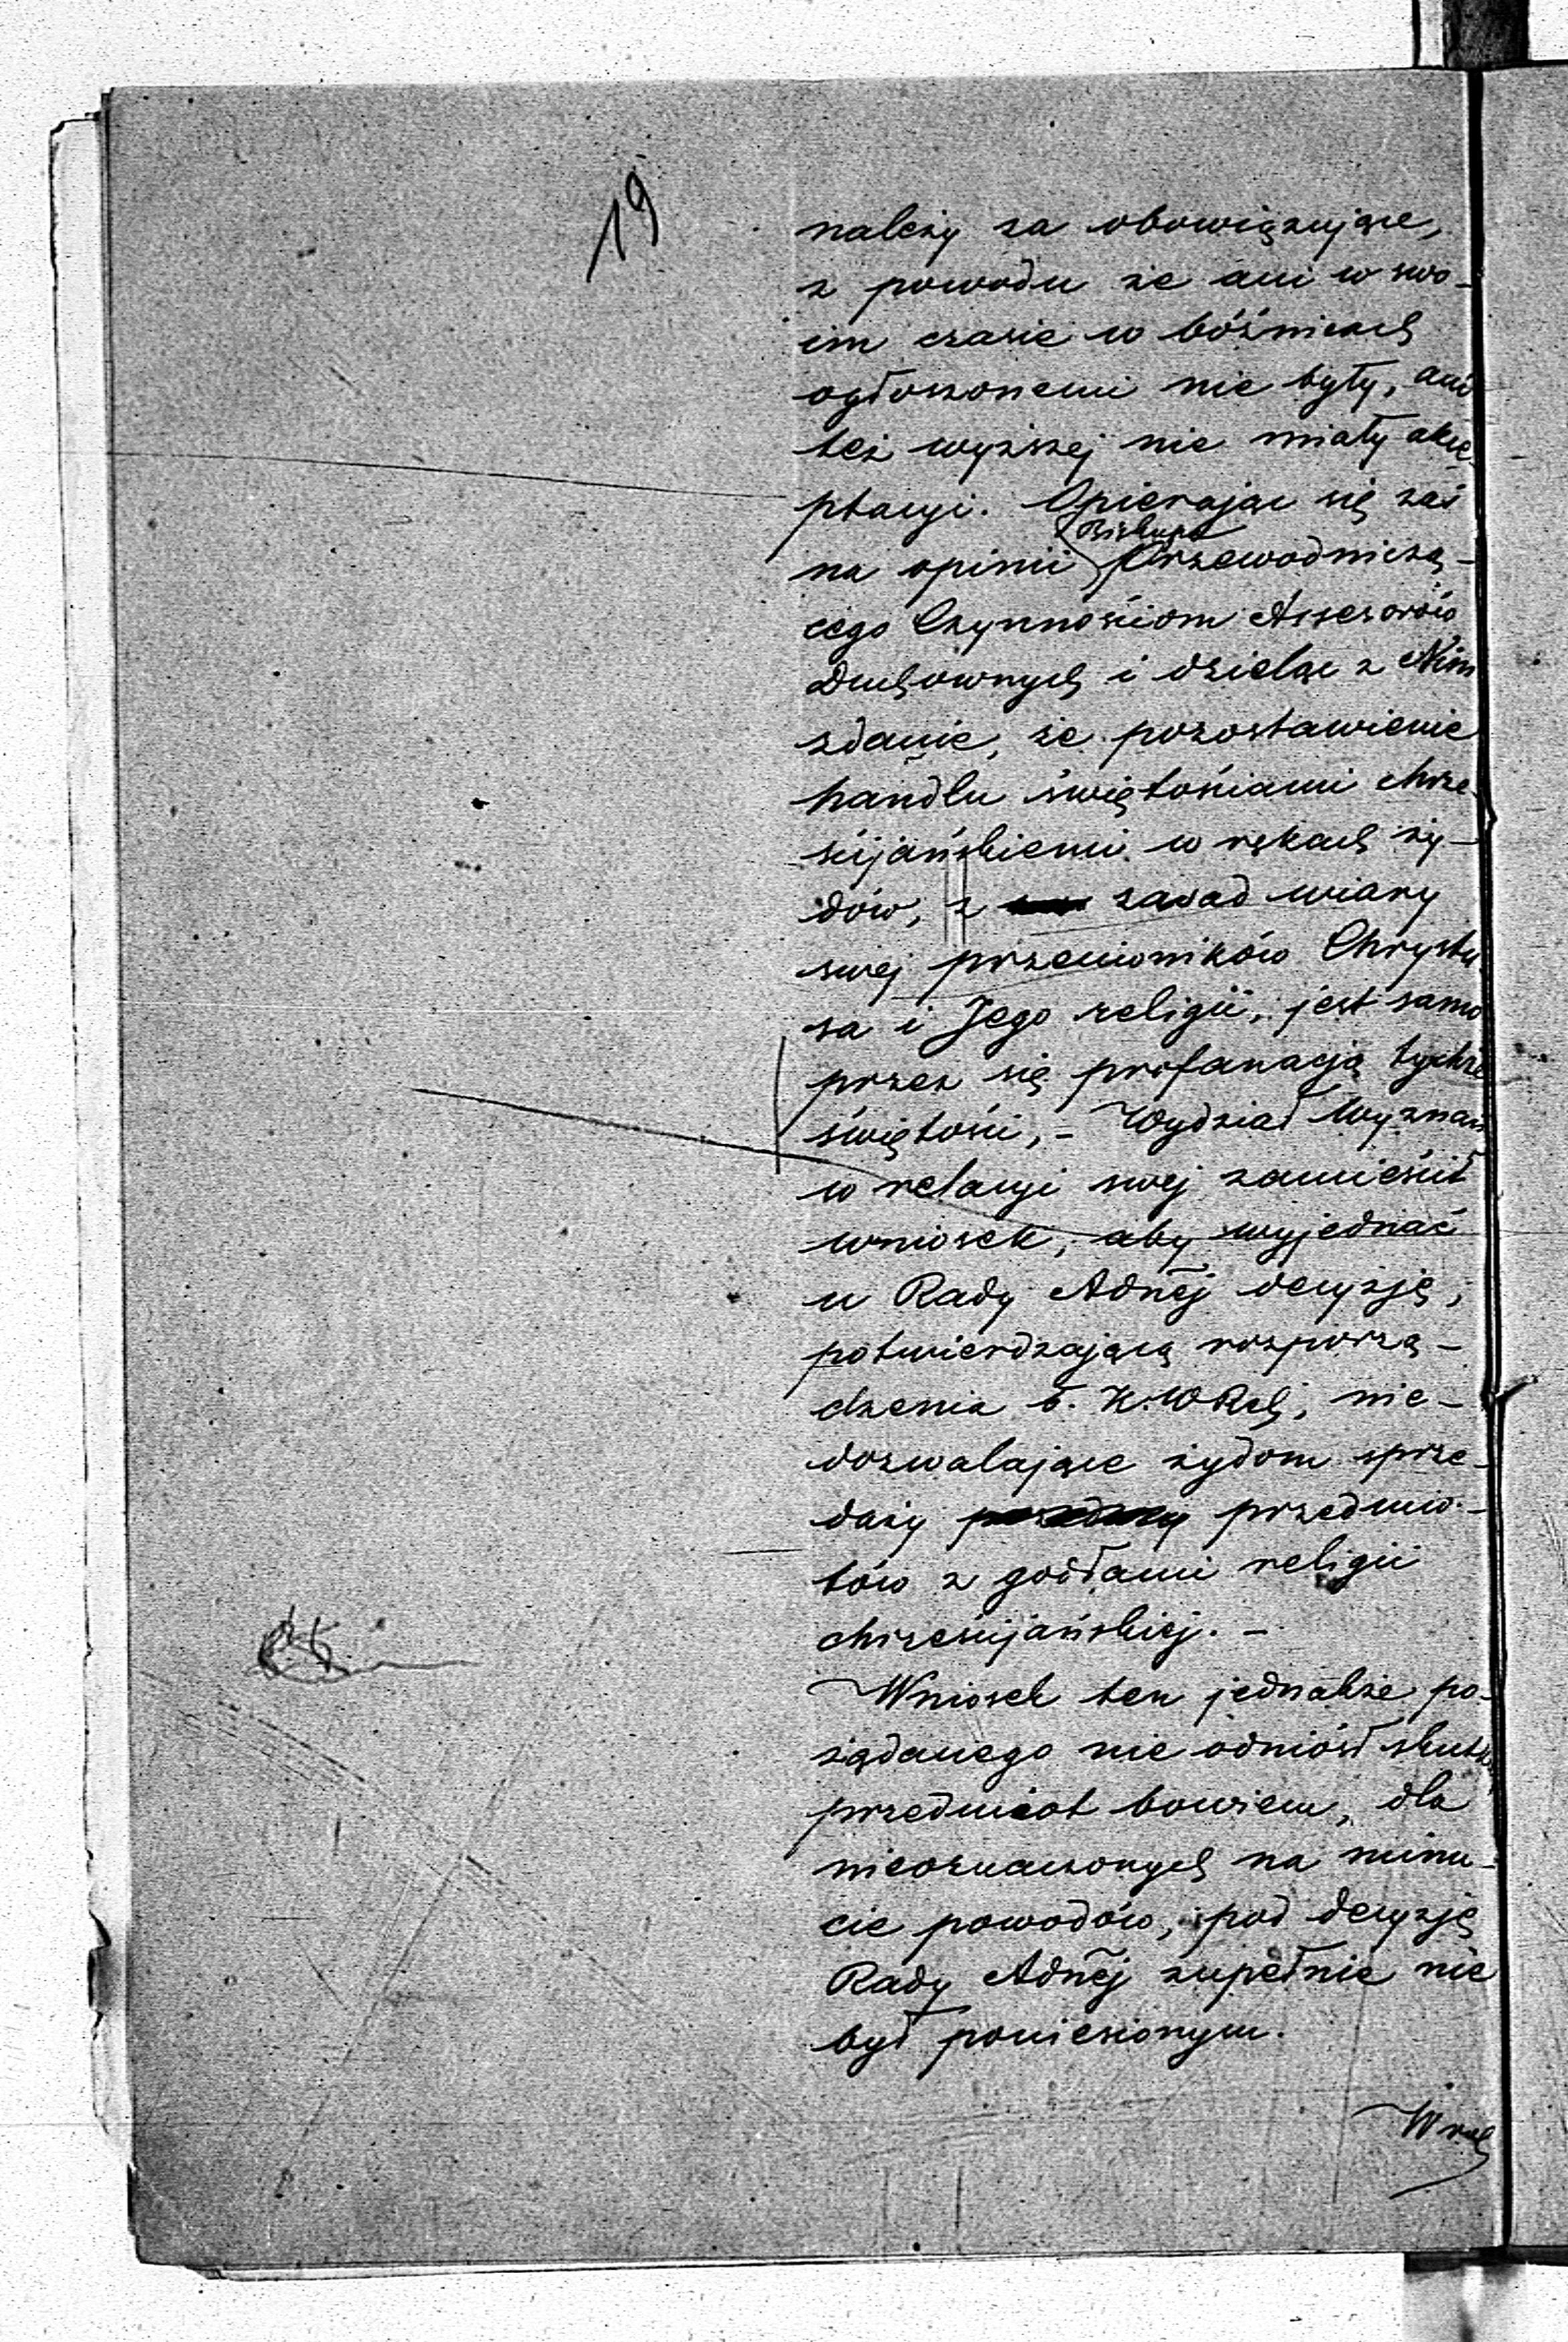 19
należy za obowiązujące,
z powodu że ani w swo-
im czasie w bóżnicach
ogłoszonemi nie były, ani
też wyższej nie miały akce-
ptacyi. Opierając się zaś
Biskupa
na opinii Przewodniczą-
cego Czynnościom Assesorów
Duchownych i dzieląc z Nim
zdanie, że pozostawienie
handlu świętościami chrze-
ścijańskiemi w rękach ży-
dów, z zasad wiary
swej przeciwników Chrystu-
sa i Jego religii, jest samo
przez się profanacją tychże
świętości, - Wydział Wyznań
w relacyi swej zamieścił
wniosek, aby wyjednać
u Rady Adnej decyzję,
potwierdzającą rozporzą-
dzenia b. K.W.R.ch, nie-
dozwalające żydom sprze-
daży przedmio-
tów z godłami religii
chrześcijańskiej. -
Wniosek ten jednakże po-
żądanego nie odniósł skutku
przedmiot bowiem, dla
nieoznaczonych na minu-
cie powodów, pod decyzję
Rady Adnej zupełnie nie
był poniesionym.